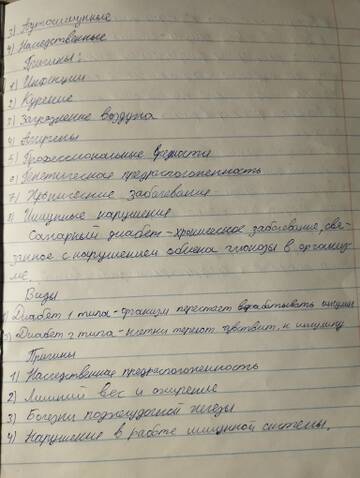 3) Аутоиммунные
4) Наследственные
Причины:
1) Инфекции
2) Курение
3) Загрязнение воздуха
4) Аллергены
5) Профессиональные вредности
6) Генетическая предрасположенность
7) Хронические заболевания
8) Иммунные нарушения
Сахарный диабет - хроническое заболевание, свя-
занное с нарушением обмена глюкозы в организ-
ме.
Виды
1) Диабет 1 типа - организм перестает вырабатывать инсулин
2) Диабет 2 типа - клетки теряют чувствит. к инсулину
Причины
1) Наследственная предрасположенность
2) Лишний вес и ожирение
3) Болезни поджелудочной железы
4) Нарушение в работе иммунной системы.